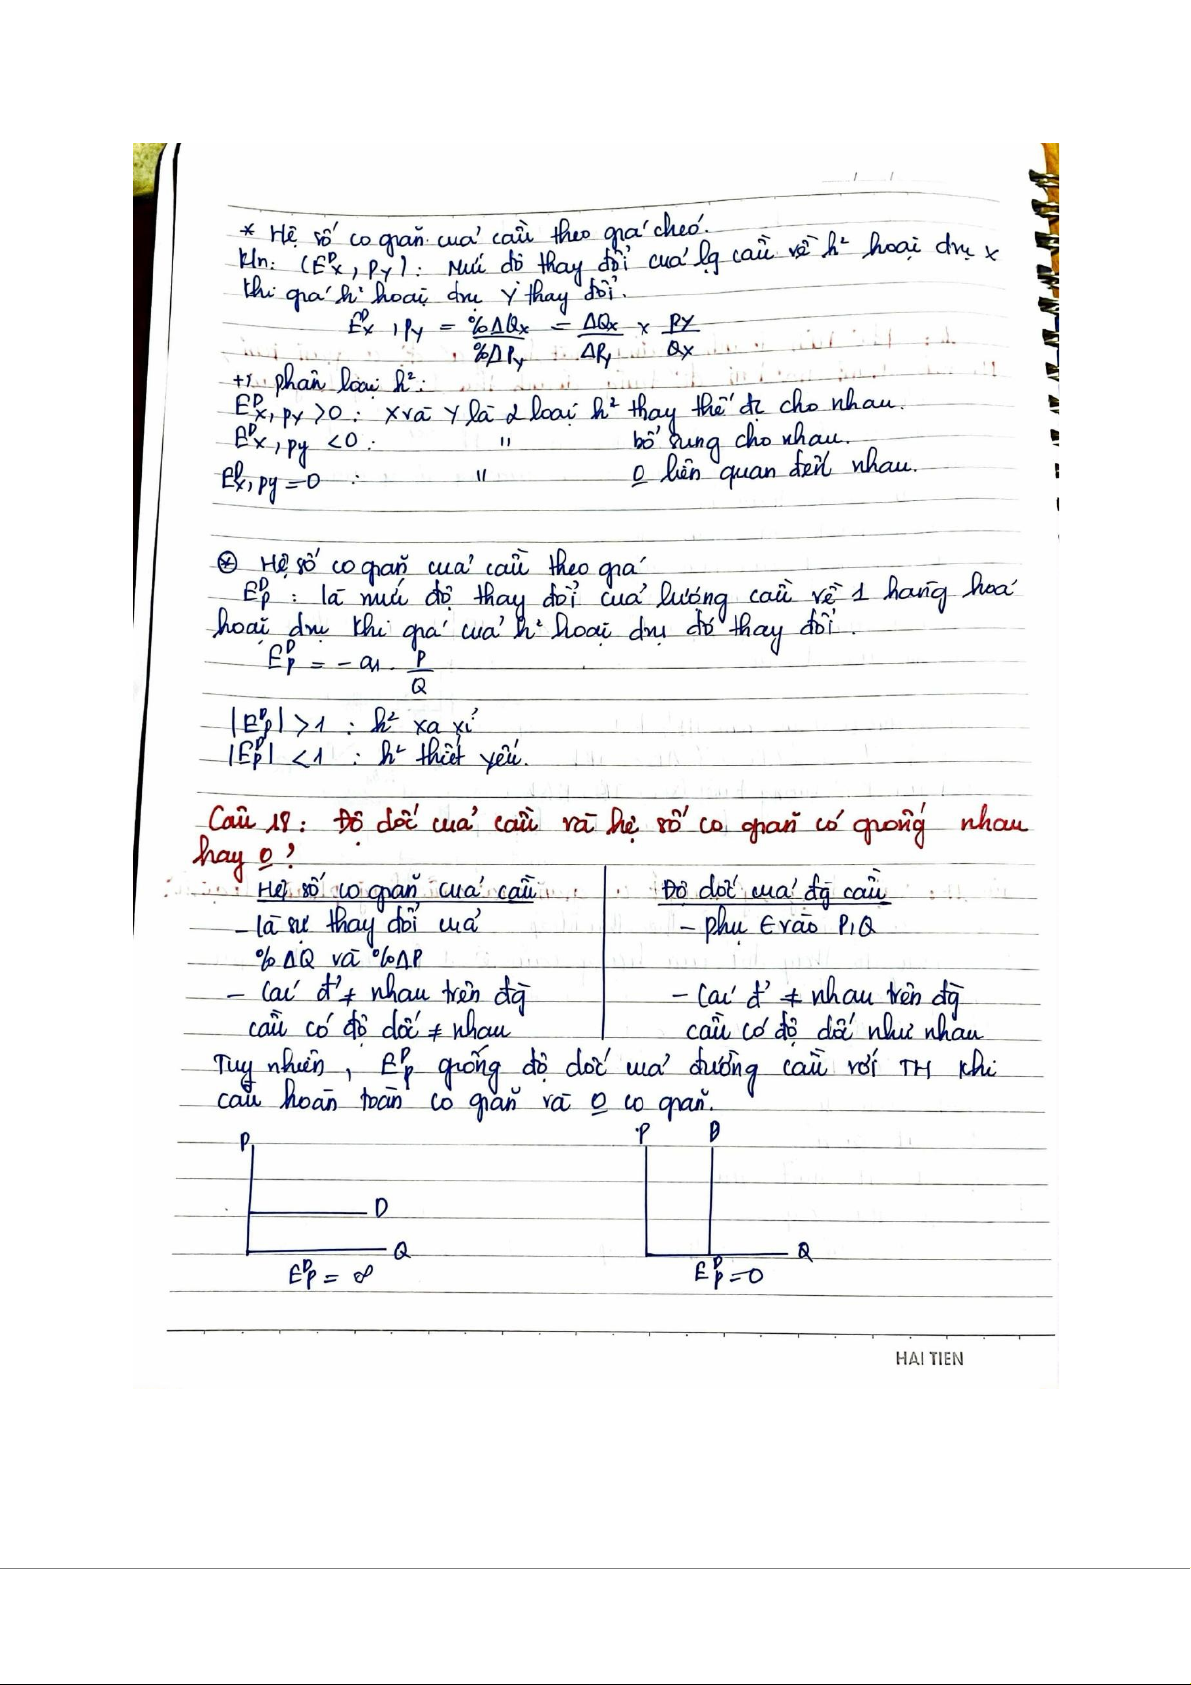 * Hệ số co giãn của cầu theo giá chéo.
Kn: (E^D_x, Py): Mức độ thay đổi của lg cầu về h² hoặc dvụ x
khi giá h² hoặc dvụ Y thay đổi.
E^D_x, Py = %ΔQx / %ΔPy = ΔQx / ΔPy × Py / Qx
+, phân loại h²:
E^D_x, py > 0 : X và Y là 2 loại h² thay thế đc cho nhau.
E^D_x, py < 0 : " bổ sung cho nhau.
E^D_x, py = 0 : " 0 liên quan đến nhau.
⊛ Hệ số co giãn của cầu theo giá
E^D_p : là mức độ thay đổi của lượng cầu về 1 hàng hoá
hoặc dvụ khi giá của h² hoặc dvụ đó thay đổi.
E^D_p = - a1 . P / Q
|E^D_p| > 1 : h² xa xỉ
|E^D_p| < 1 : h² thiết yếu.
Câu 18: Độ dốc của cầu và hệ số co giãn có giống nhau
hay 0?
Hệ số co giãn của cầu
- là sự thay đổi của
%ΔQ và %ΔP
- Các đ' ≠ nhau trên đg
cầu có độ dốc ≠ nhau
Độ dốc của đg cầu
- phụ ∈ vào P, Q
- Các đ' ≠ nhau trên đg
cầu có độ dốc như nhau
Tuy nhiên, E^D_p giống độ dốc của đường cầu với TH khi
cầu hoàn toàn co giãn và 0 co giãn.
P
D
Q
E^D_p = ∞
P D
Q
E^D_p = 0
HAI TIEN